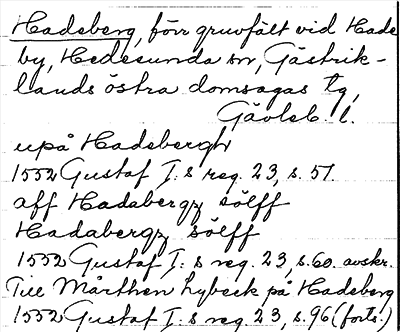 Hadeberg, förr gruvfält vid Hade
by, Hedesunda sn, Gästrik-
lands östra domsagas tg,
Gävleb. l.
upå Hadebergh
1552 Gustaf I:s reg. 23, s. 57.
aff Hadabergz sölff
Hadabergz sölff
1552 Gustaf I:s reg. 23, s. 60. avskr.
Till Mårthen Lybeck på Hadeberg
1552 Gustaf I:s reg. 23, s. 96 (forts.)